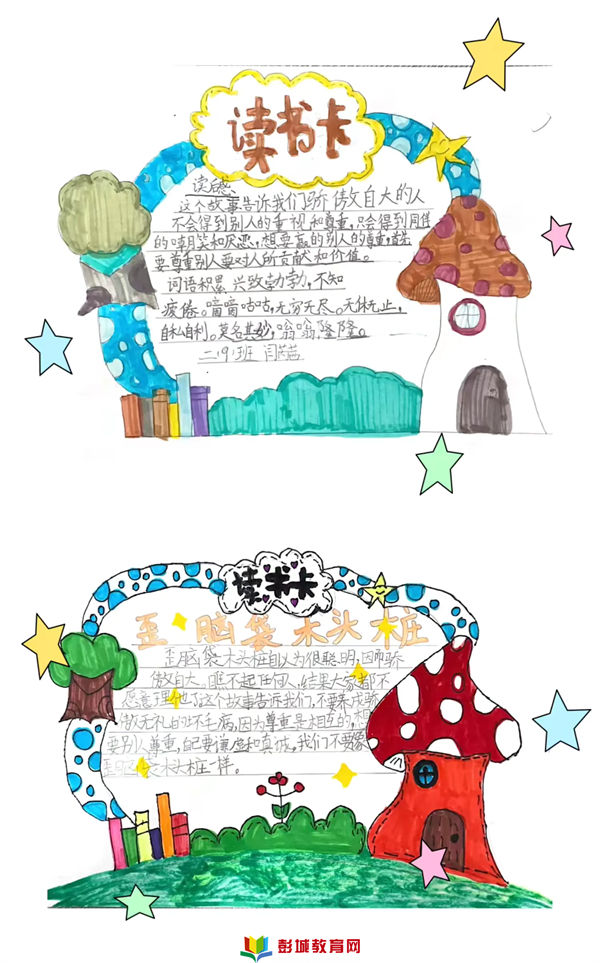 读书卡
读后感
这个故事告诉我们骄傲自大的人
不会得到别人的重视和尊重,只会得到同伴
的嘲笑和厌恶,想要赢的别人的尊重,首先
要尊重别人要对人所贡献和价值。
词语积累 兴致勃勃,不知
疲倦。嘀嘀咕咕,无穷无尽。无休无止,
自私自利。莫名其妙,嗡嗡隆隆。
二(9)班 闫
读书卡
歪脑袋木头桩
歪脑袋木头桩自认为很聪明,因而骄
傲自大、瞧不起任何人、结果大家都不
愿意理他了这个故事告诉我们,不要养成骄
傲无礼的坏毛病,因为尊重是相互的,想
要别人尊重,自己要谦虚和真诚,我们不要像
歪脑袋木头桩一样。
彭城教育网